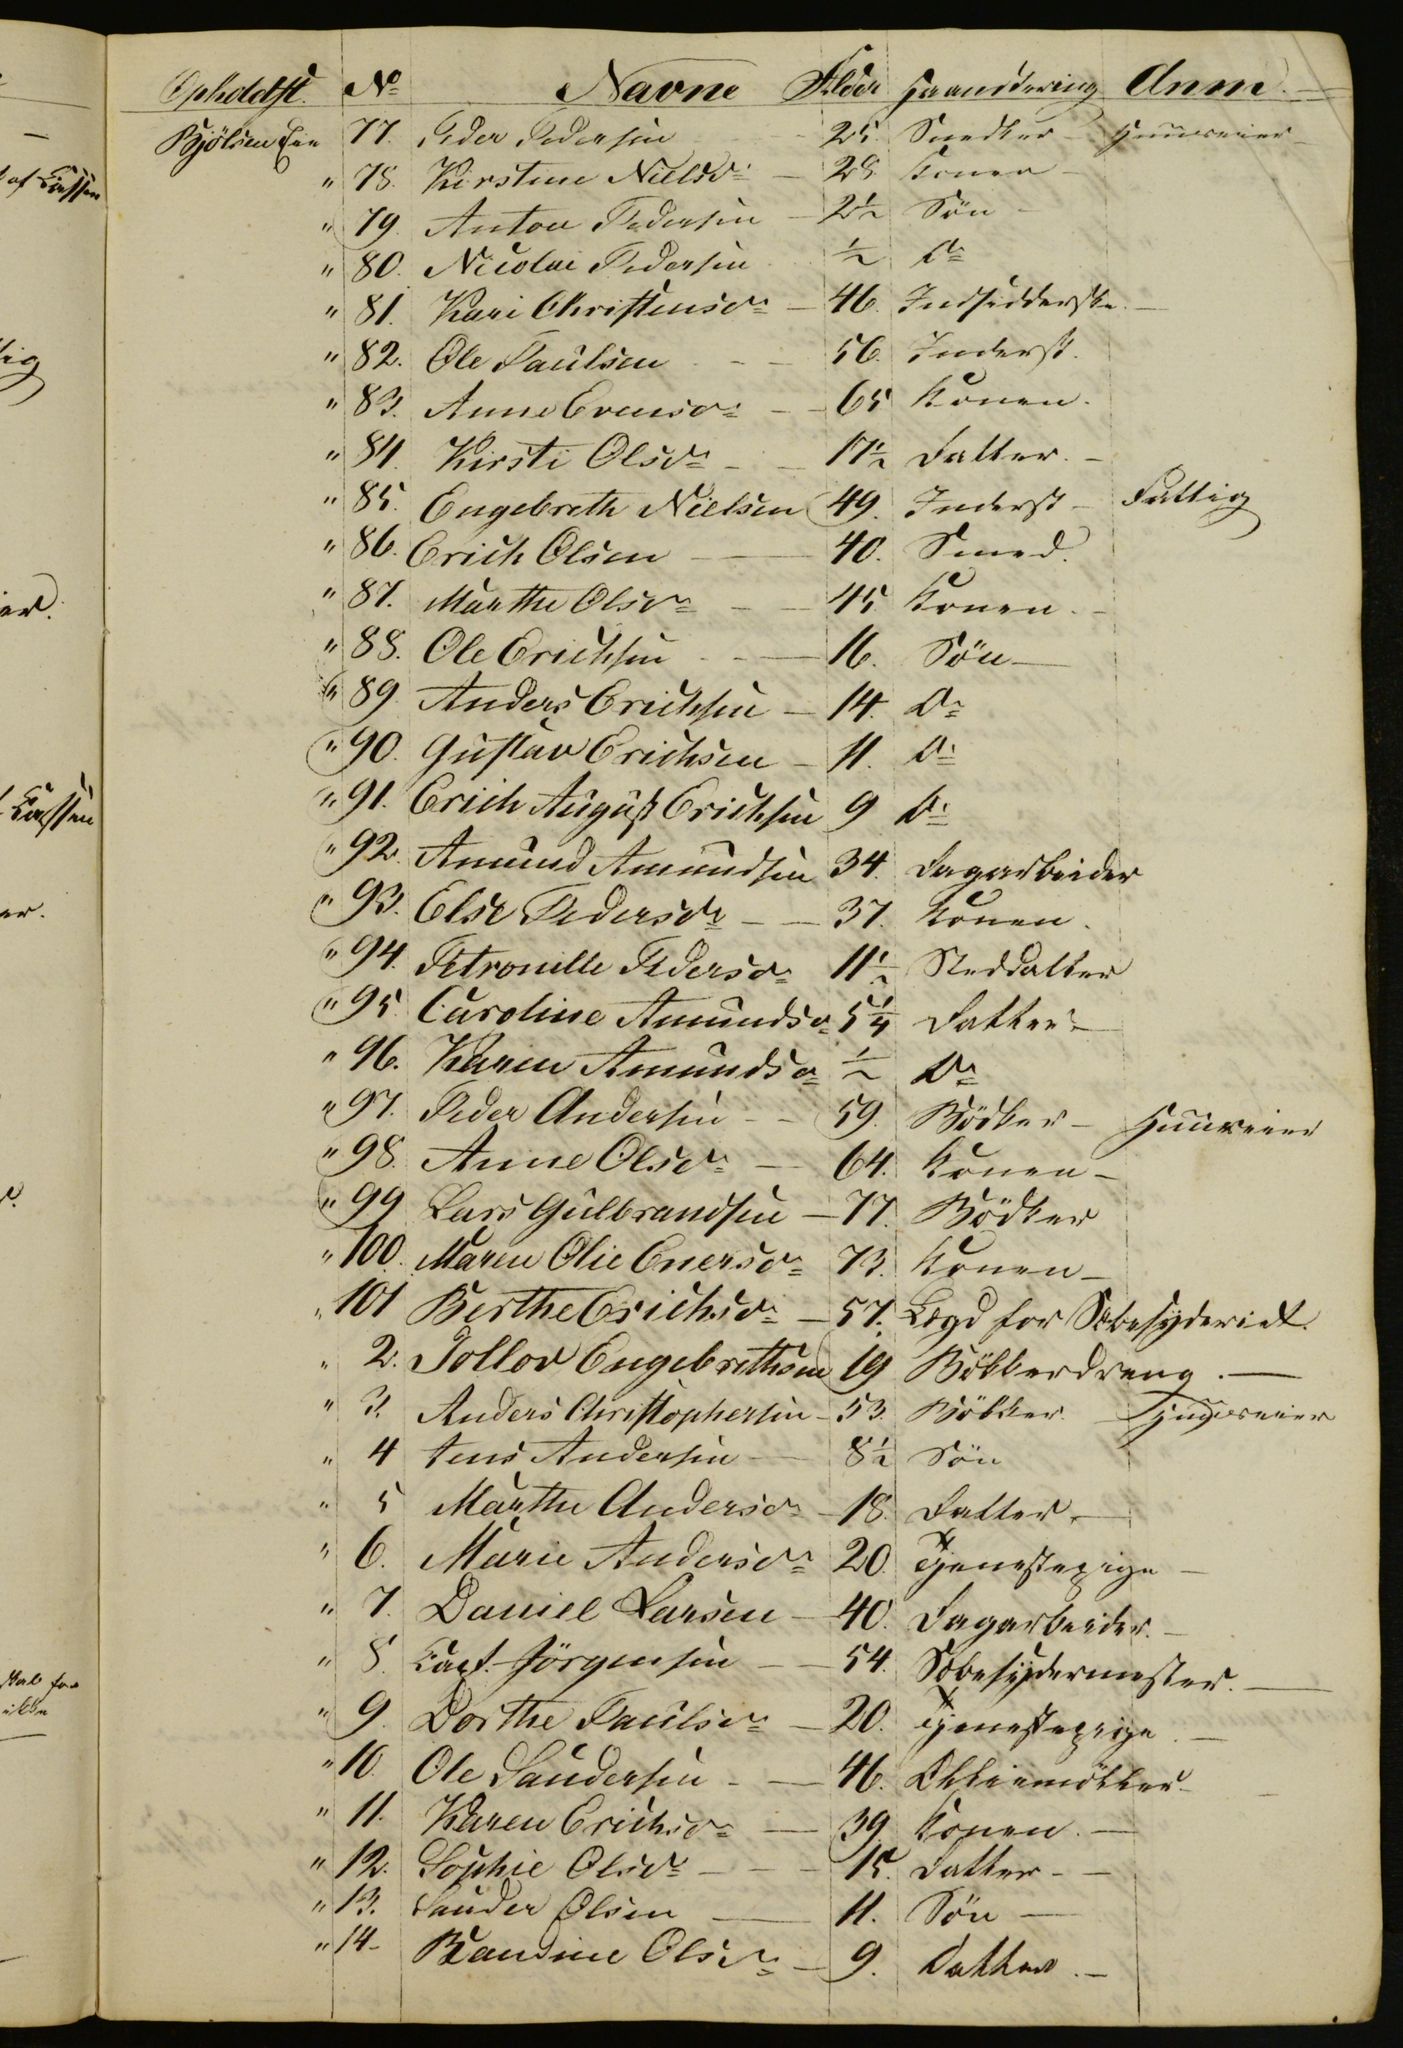 Opholdst. No Navne Alder Haandtering Anm.
Bjölsen Eie 77. Peder Pedersen 25. Snedker Huuseier
" 78. Kirstine Nielsdr 28 Konen
" 79. Anton Pedersen 2½ Sön
" 80. Nicolai Pedersen ½ Do
" 81. Kari Christensdr 46. Indsidderske
" 82. Ole Paulsen 56. Inderst.
" 83. Anne Evensdr 65 Konen.
" 84. Kirsti Olsdr 17½ Datter.
" 85. Engebreth Nielsen 49. Inderst Fattig
" 86. Erich Olsen 40. Smed.
" 87. Marthe Olsdr 45 Konen.
" 88. Ole Erichsen 16. Sön
" 89 Anders Erichsen 14. Do
" 90. Gustav Erichsen 11. Do
" 91. Erich August Erichsen 9 Do
" 92. Amund Amundsen 34. Dagarbeider
" 93. Else Pedersdr 37. Konen.
" 94. Petronille Pedersdr 11½ Steddatter
" 95. Caroline Amundsdr 5¼ Datter
" 96. Karen Amundsdr ½ Do
" 97. Peder Andersen 59. Bödker Huuseier
" 98. Anne Olsdr 64. Konen
" 99 Lars Gulbrandsen 77. Bödker
" 100. Maren Olie Enersdr 73. Konen
" 101 Berthe Erichsdr 57. Lægd for Sæbesyderiet.
" 2. Tollov Engebrethsen 19 Bökkerdreng.
" 3. Anders Christophersen 53. Bökker. Huuseier
" 4 Jens Andersen 8½ Sön
" 5 Marthe Andersdr 18. Datter.
" 6. Marie Andersdr 20. Tjenestepige
" 7. Daniel Larsen 40. Dagarbeider.
" 8. Capt. Jörgensen 54. Sæbesydermester.
" 9. Dorthe Paulsdr 20. Tjenestepige.
" 10. Ole Sandersen 46. Oliemöller
" 11. Karen Erichsdr 39. Konen.
" 12. Sophie Olsdr 15. Datter
" 13. Sander Olsen 11. Sön
" 14 Randine Olsdr 9. Datter.